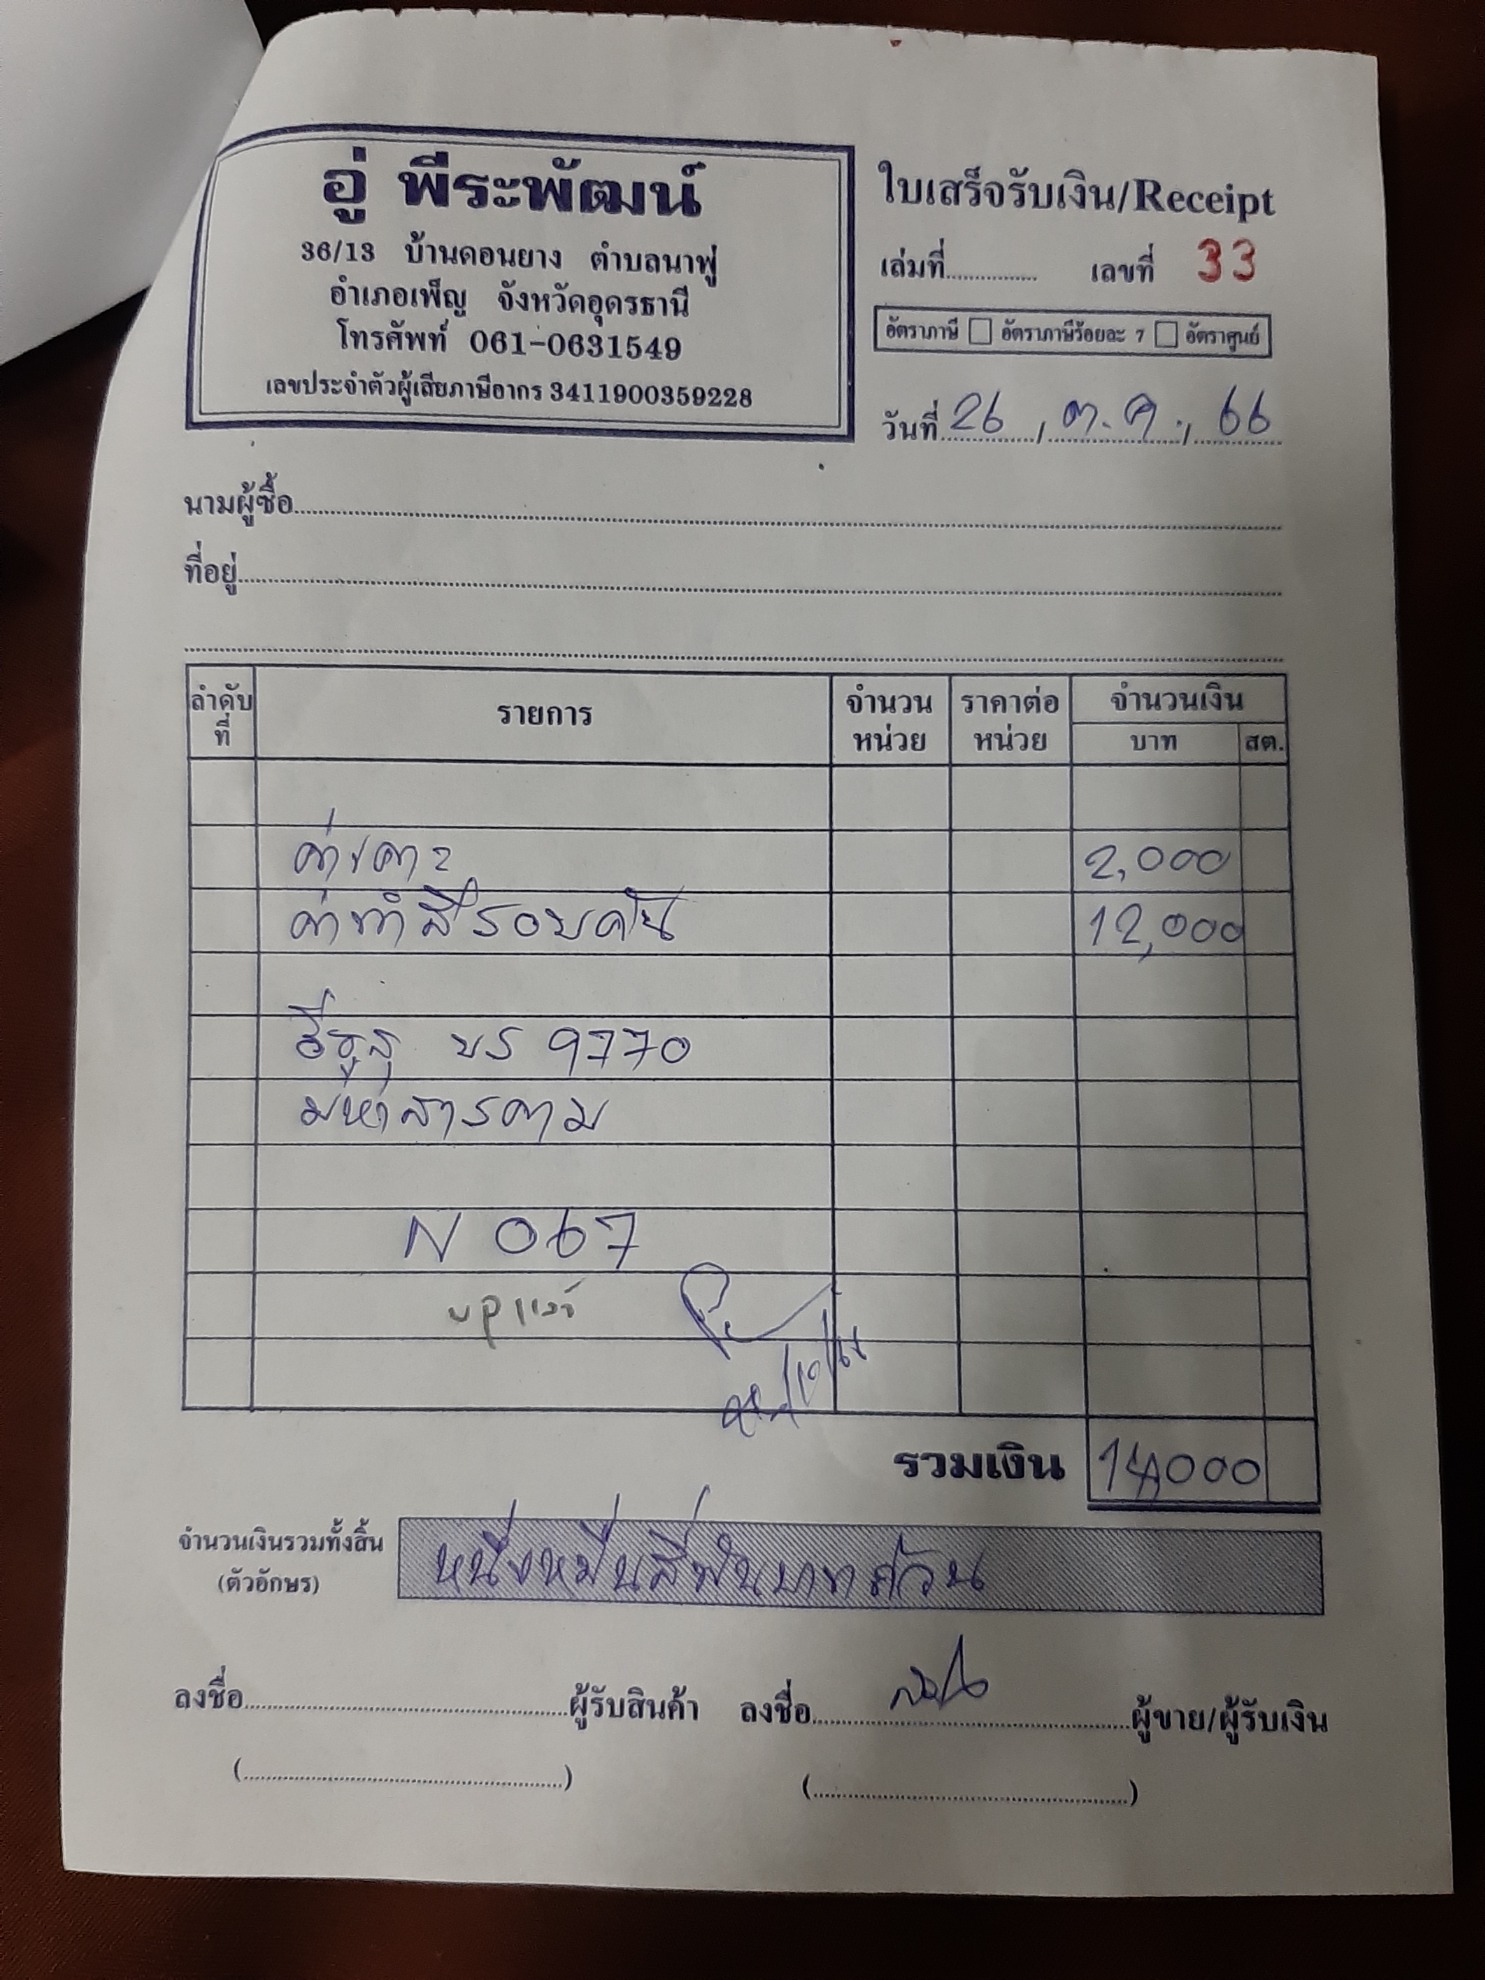 อู่ พีระพัฒน์
36/13 บ้านดอนยาง ตำบลนาพู่
อำเภอเพ็ญ จังหวัดอุดรธานี
โทรศัพท์ 061-0631549
เลขประจำตัวผู้เสียภาษีอากร 3411900359228
ใบเสร็จรับเงิน/Receipt
เล่มที่............... เลขที่ 33
อัตราภาษี อัตราภาษีร้อยละ 7 อัตราศูนย์
วันที่ 26 / ต.ค. / 66
นามผู้ซื้อ
ที่อยู่
ลำดับที่ รายการ จำนวนหน่วย ราคาต่อหน่วย จำนวนเงิน
บาท สต.
ค่าเคาะ 2,000
ค่าทำสีรอบคัน 12,000
อีซูซุ บร 9770
มหาสารคาม
N 067
รวมเงิน 14,000
จำนวนเงินรวมทั้งสิ้น
(ตัวอักษร)
หนึ่งหมื่นสี่พันบาทถ้วน
ลงชื่อ ผู้รับสินค้า ลงชื่อ ผู้ขาย/ผู้รับเงิน